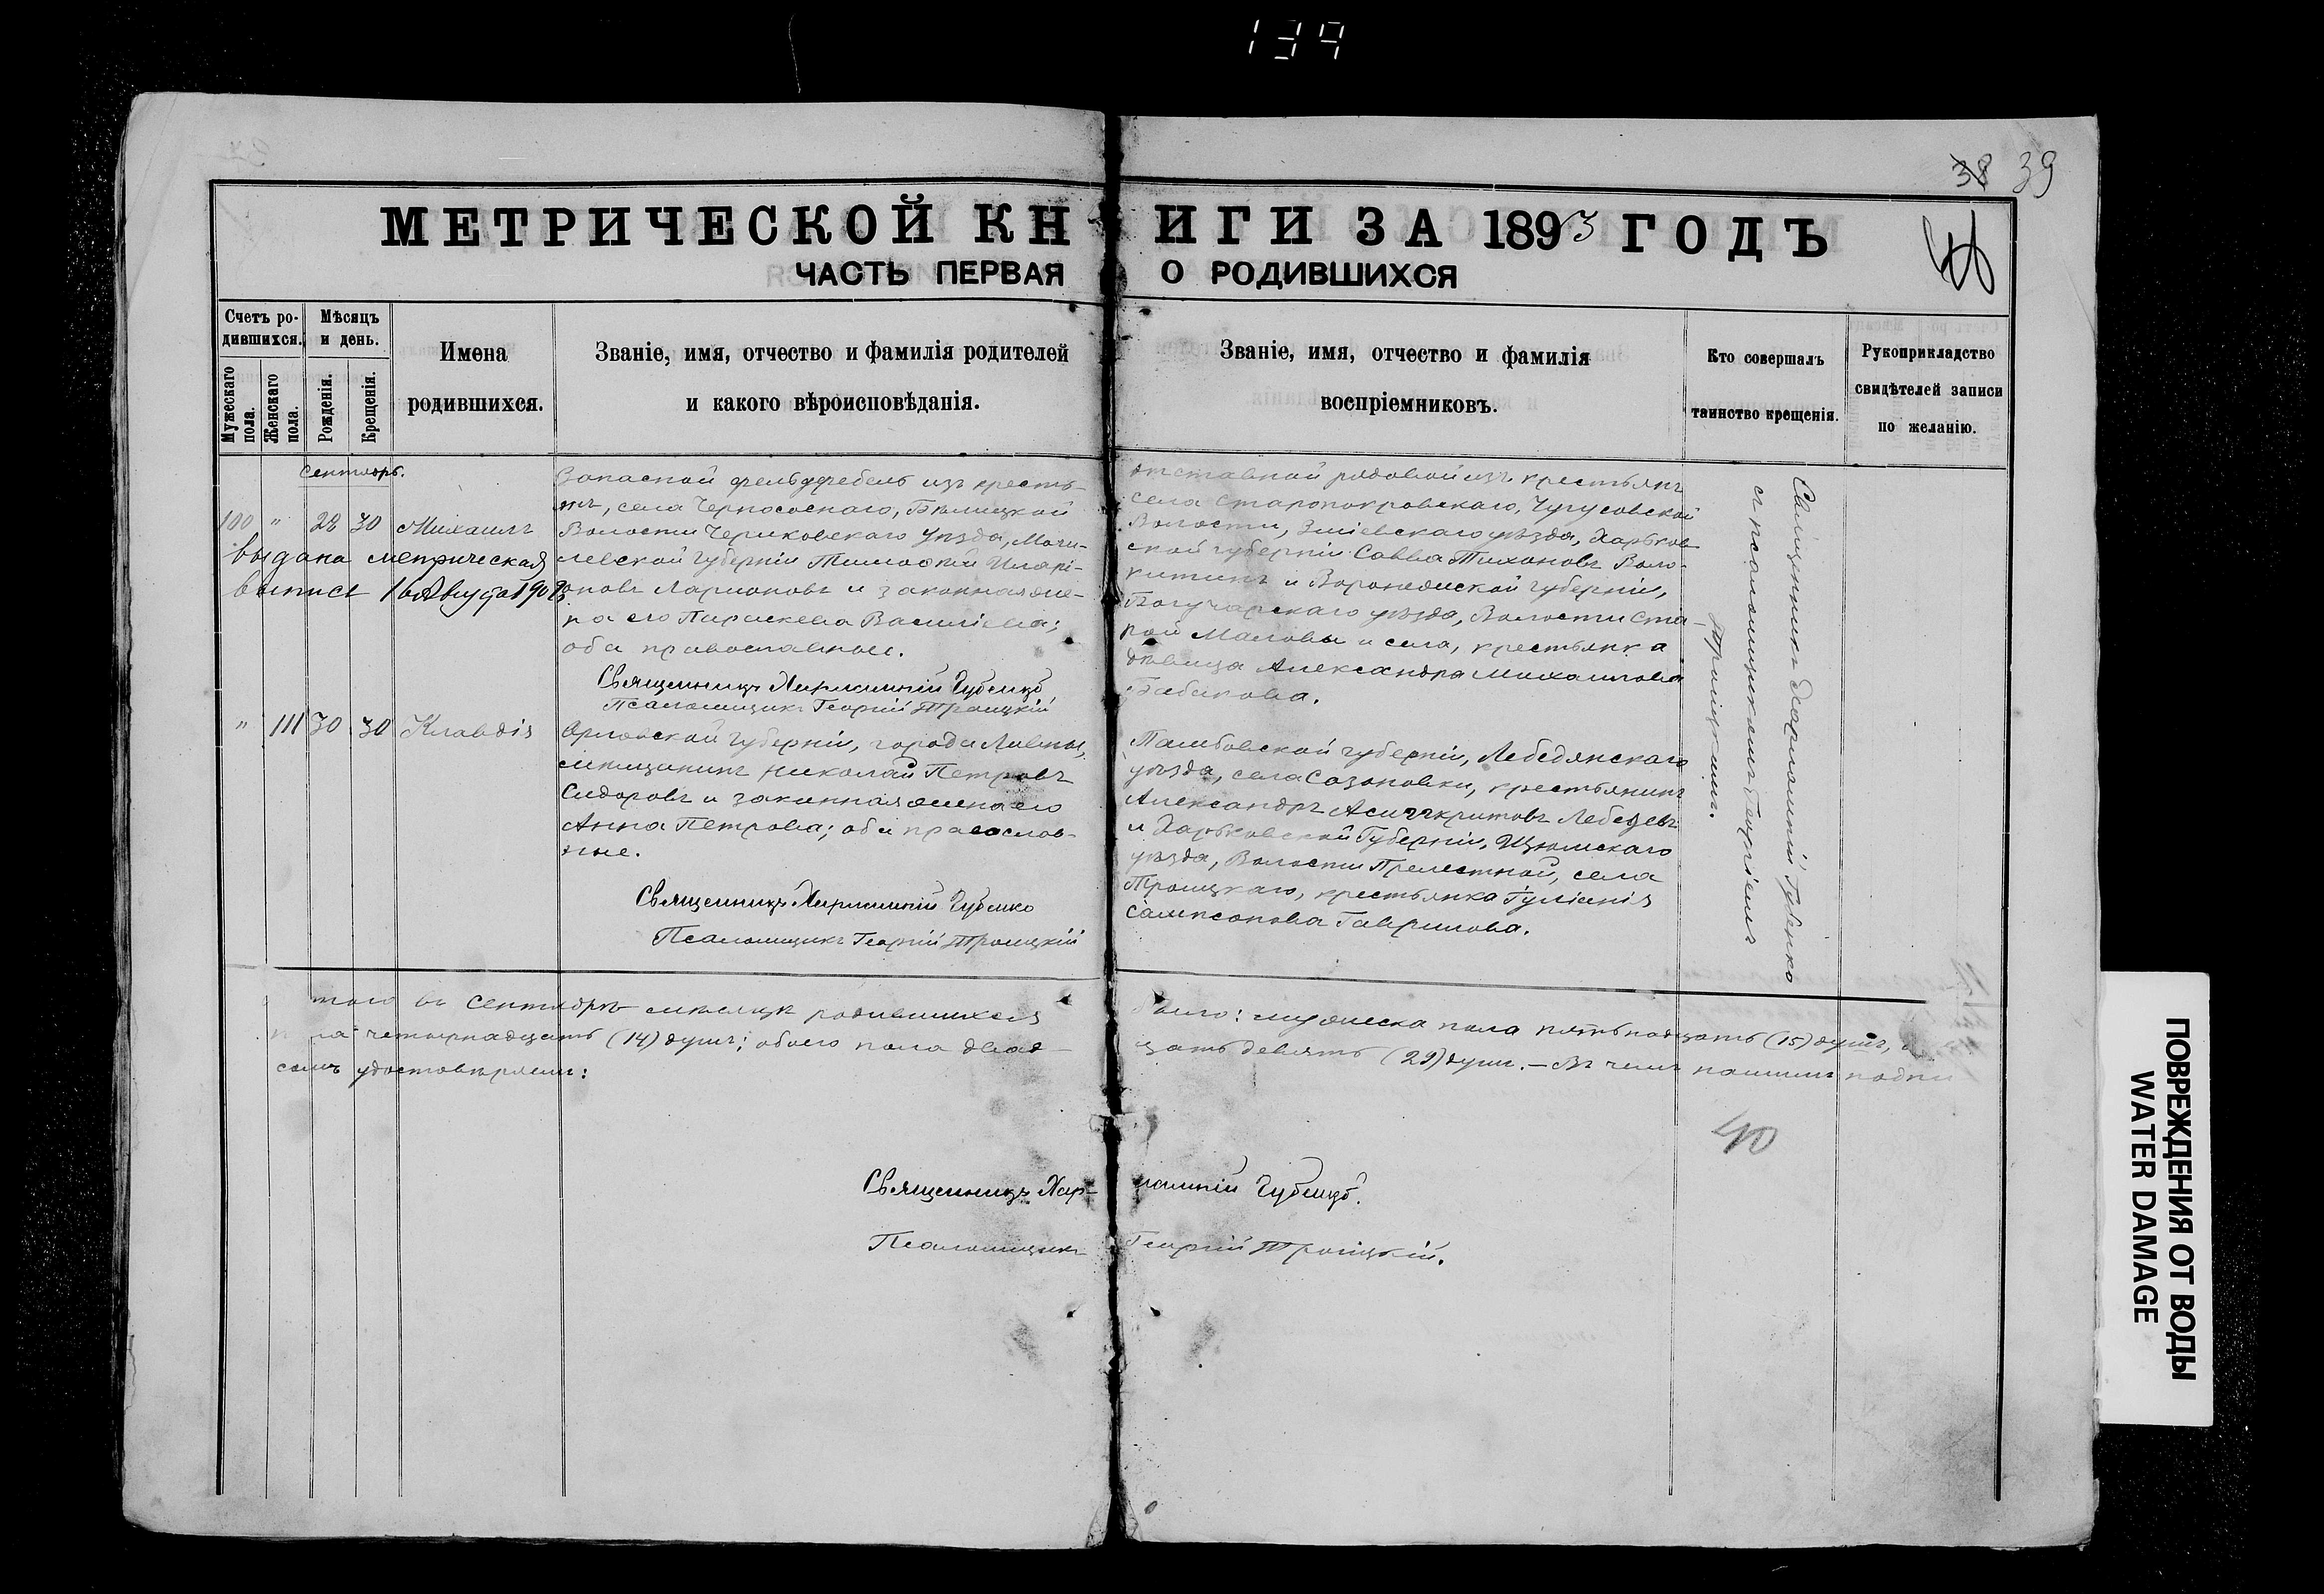 134
38 39
МЕТРИЧЕСКОЙ КНИГИ ЗА 1893 ГОДЪ
ЧАСТЬ ПЕРВАЯ О РОДИВШИХСЯ
Счетъ ро-
дившихся.
Мужескаго пола.
Женскаго пола.
Мѣсяцъ
и день.
Рожденія.
Крещенія.
Имена
родившихся.
Званіе, имя, отчество и фамилія родителей
и какого вѣроисповѣданія.
Званіе, имя, отчество и фамилія
воспріемниковъ.
Кто совершалъ
таинство крещенія.
Рукоприкладство
свидѣтелей записи
по желанію.
Сентябрь.
100 " 28 30 Михаилъ
Выдана метрическая
выпись 16 Августа
Запасной фельдфебель изъ кресть-
янъ, села Чернососнаго, Бѣлицкой
Волости Чериковскаго уѣзда, Моги-
левской губерніи Тимофей Иларі-
оновъ Ларионовъ и законная же-
на его Параскева Васильева;
оба православные.
Священникъ Харлампій Губенко
Псаломщикъ Георгій Троицкій
отставной рядовой изъ крестьянъ
села Старопокровскаго, Чугуевской
Волости, Зміевскаго уѣзда, Харьков-
ской губерніи Савва Тихоновъ Воло-
китинъ и Воронежской губерніи,
Богучарскаго уѣзда, Волости Ста-
рой Маловы и села, крестьянка
дѣвица Александра Михаилова
Бабакова.
Священникъ Харлампій Губенко
съ псаломщикомъ Георгіемъ
Троицкимъ.
" 111 30 30 Клавдія
Орловской губерніи, города Ливны,
мѣщанинъ Николай Петровъ
Сидоровъ и законная жена его
Анна Петрова; оба православ-
ные.
Священникъ Харлампій Губенко
Псаломщикъ Георгій Троицкій
Тамбовской губерніи, Лебедянскаго
уѣзда, села Сазоновки, крестьянинъ
Александръ Асигкритовъ Лебедевъ
и Харьковской Губерніи, Изюмскаго
уѣзда, Волости Прелестной, села
Троицкаго, крестьянка Іуліанія
Сампсонова Гаврилова.
того въ Сентябрѣ мѣсяцѣ родившихся было: мужеска пола пятьнадцать (15) душъ,
четырнадцать (14) душъ; обоего пола двад-цать девять (29) душъ. — Въ чемъ нашимъ подпи
семъ удостовѣряемъ:
40
Священникъ Харлампій Губенко.
Псаломщикъ Георгій Троицкій.
ПОВРЕЖДЕНИЯ ОТ ВОДЫ
WATER DAMAGE